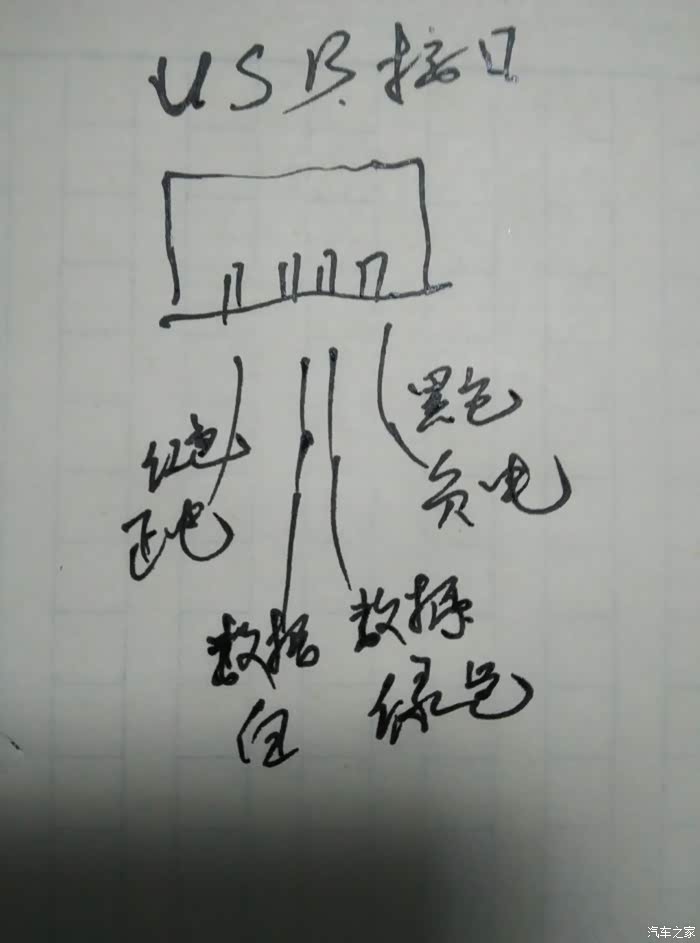 USB接口
红色
正电
黑色
负电
数据
白
数据
绿色
汽车之家